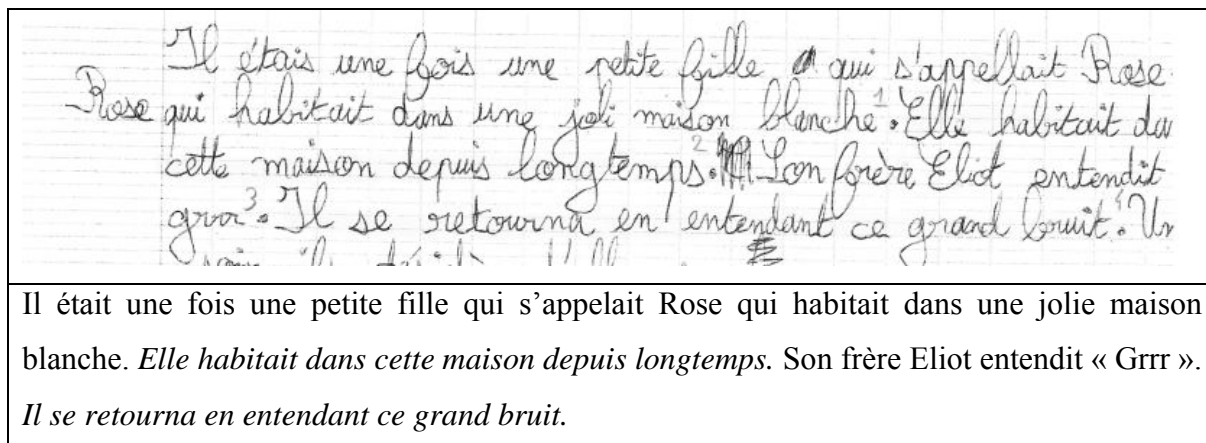 Il étais une fois une petite fille qui s'appellait Rose
Rose qui habitait dans une joli maison blanche 1. Elle habitait da
cette maison depuis longtemps 2. Son frère Eliot entendit
grrr 3. Il se retourna en entendant ce grand bruit 4. Un
Il était une fois une petite fille qui s’appelait Rose qui habitait dans une jolie maison
blanche. Elle habitait dans cette maison depuis longtemps. Son frère Eliot entendit « Grrr ».
Il se retourna en entendant ce grand bruit.